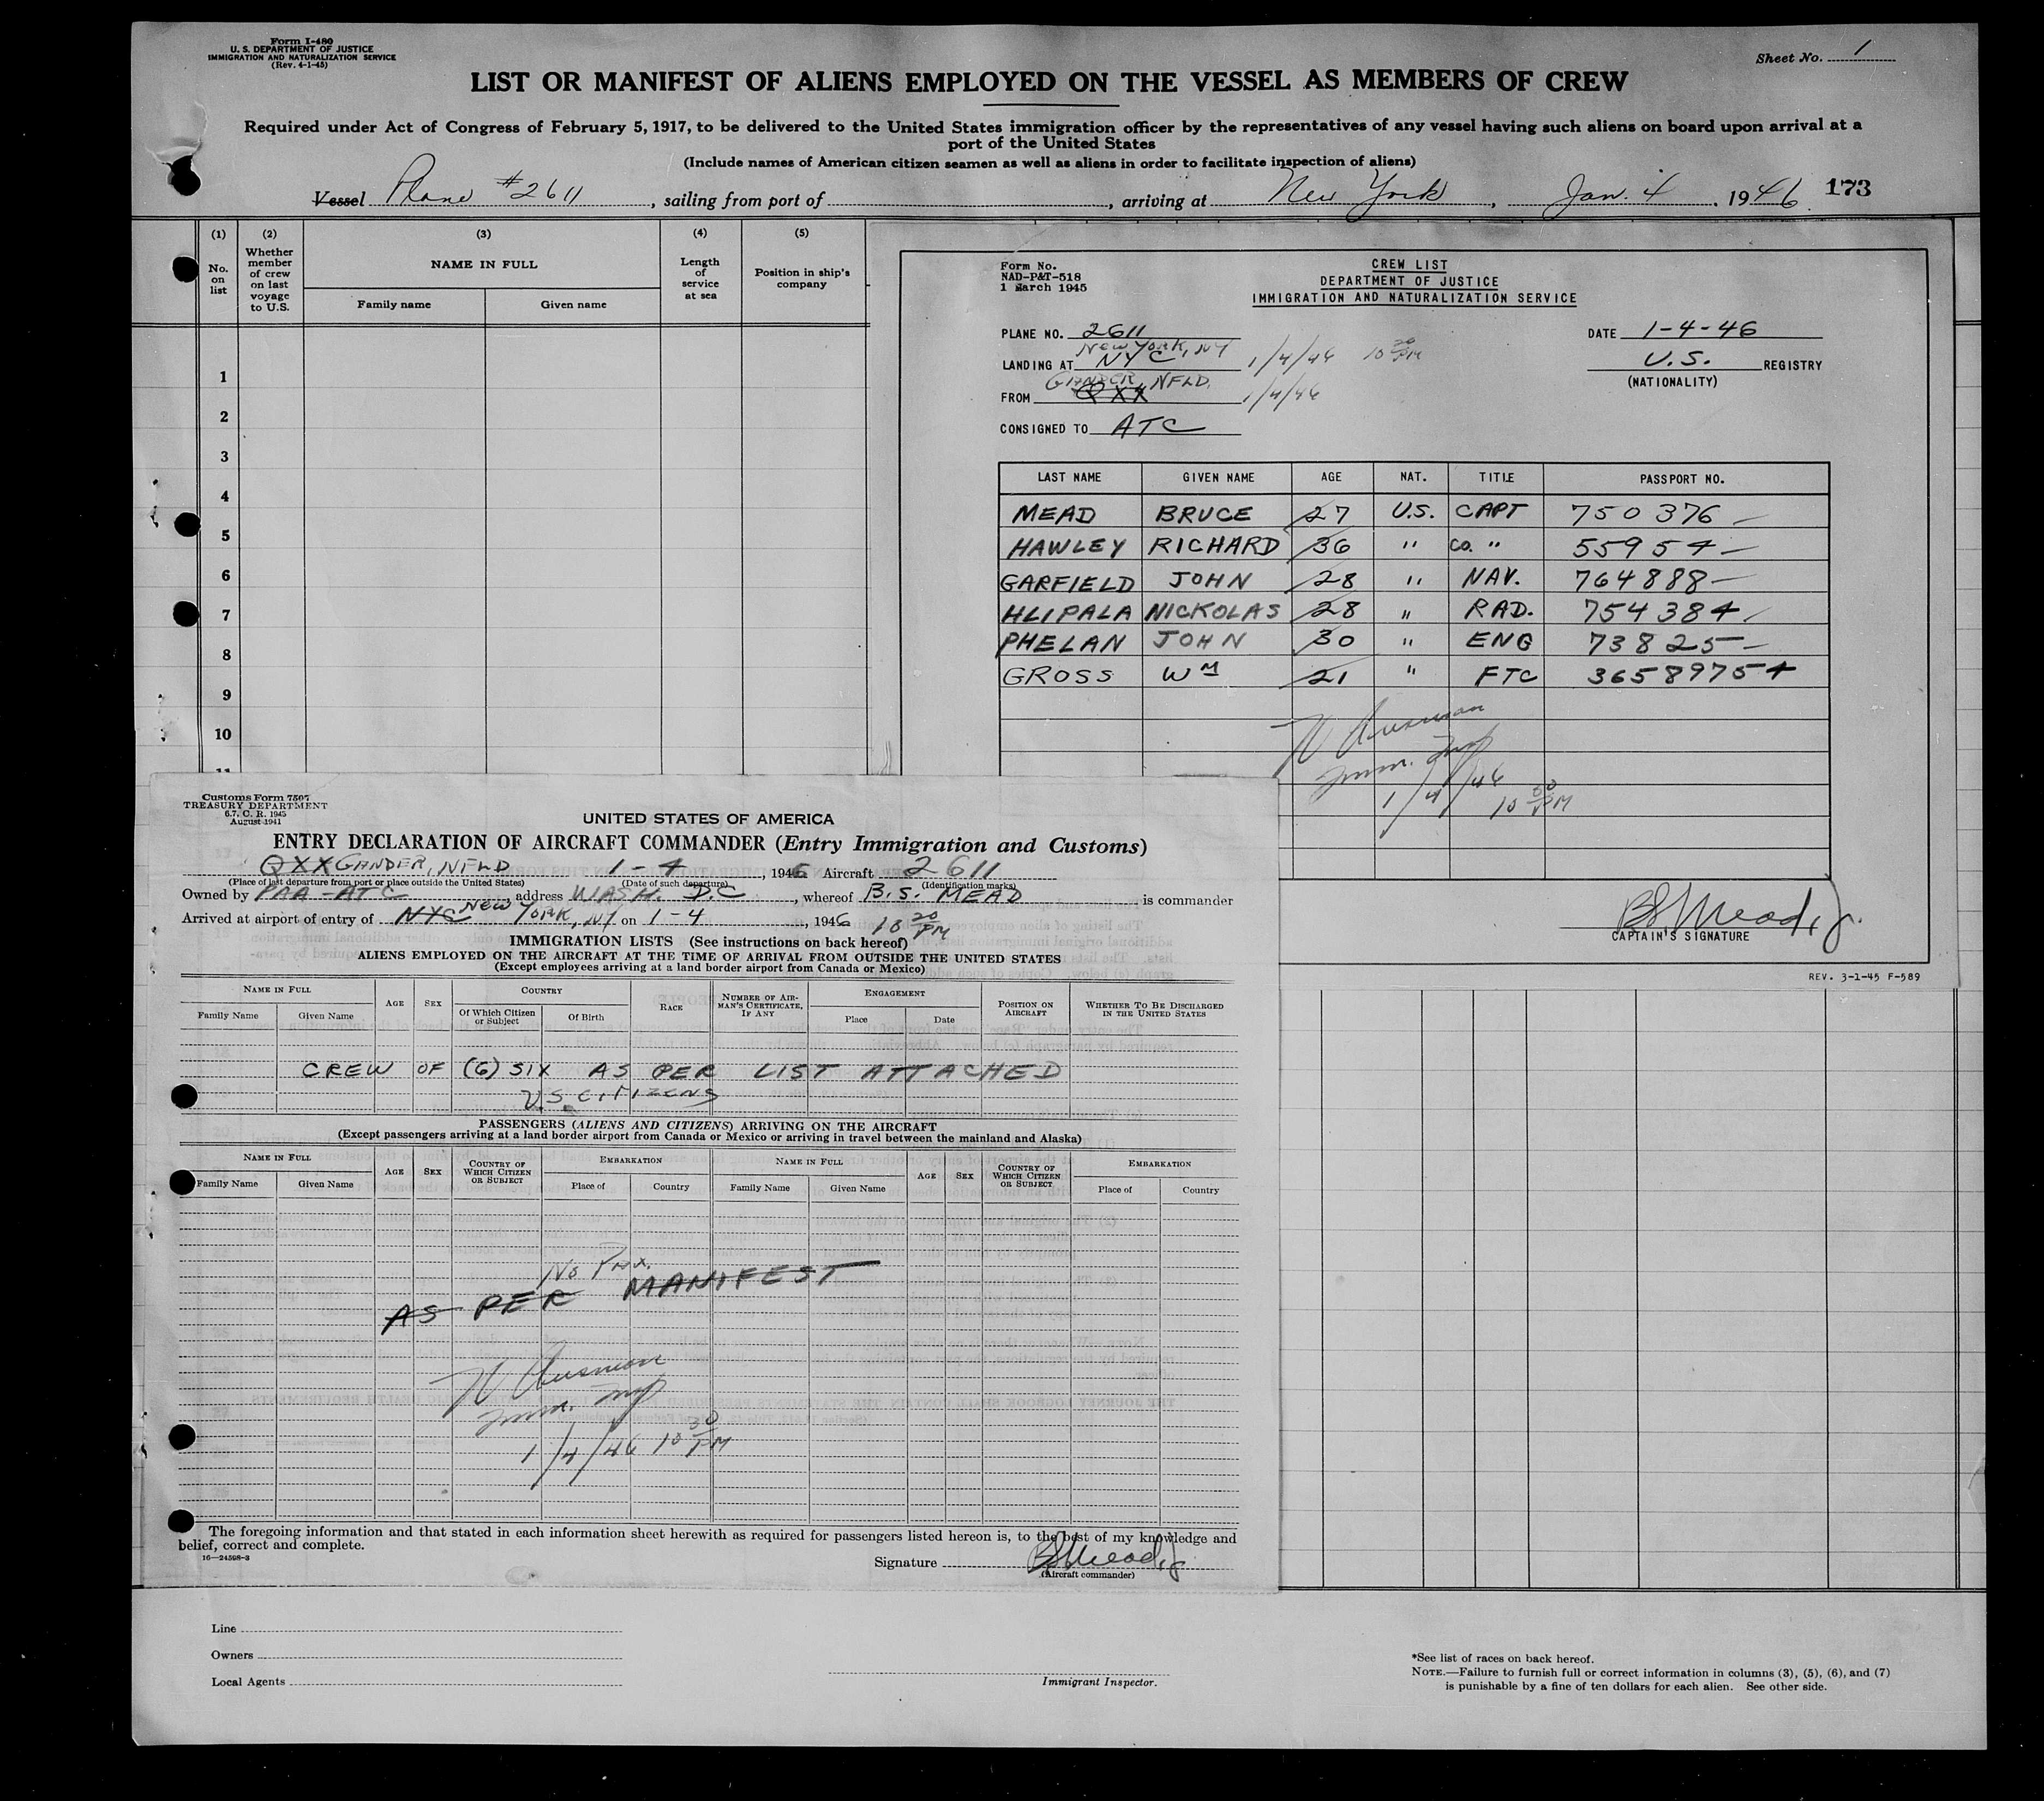 Form I-480
U. S. DEPARTMENT OF JUSTICE
IMMIGRATION AND NATURALIZATION SERVICE
(Rev. 4-1-45)
Sheet No. 1
LIST OR MANIFEST OF ALIENS EMPLOYED ON THE VESSEL AS MEMBERS OF CREW
Required under Act of Congress of February 5, 1917, to be delivered to the United States immigration officer by the representatives of any vessel having such aliens on board upon arrival at a
port of the United States
(Include names of American citizen seamen as well as aliens in order to facilitate inspection of aliens)
Vessel Plane #2611, sailing from port of , arriving at New York, Jan. 4, 1946 173
(1) (2) (3) (4) (5)
No. on list
Whether member of crew on last voyage to U.S.
NAME IN FULL
Family name Given name
Length of service at sea
Position in ship's company
1
2
3
4
5
6
7
8
9
10
11
Form No.
NAD-P&T-518
1 March 1945
CREW LIST
DEPARTMENT OF JUSTICE
IMMIGRATION AND NATURALIZATION SERVICE
PLANE NO. 2611 DATE 1-4-46
NEW YORK, NY
LANDING AT NYC 1/4/46 10 20 PM U.S. REGISTRY
(NATIONALITY)
GANDER, NFLD.
FROM QXX 1/4/46
CONSIGNED TO ATC
LAST NAME GIVEN NAME AGE NAT. TITLE PASSPORT NO.
MEAD BRUCE 27 U.S. CAPT 750376 –
HAWLEY RICHARD 36 " CO. " 55954 –
GARFIELD JOHN 28 " NAV. 764888 –
HLIPALA NICKOLAS 28 " RAD. 754384 –
PHELAN JOHN 30 " ENG 73825 –
GROSS WM 21 " FTC 36589754
Imm. Insp
1/4/46 10 30 PM
BSMead, Jr.
CAPTAIN'S SIGNATURE
REV. 3-1-45 F-589
Customs Form 7507
TREASURY DEPARTMENT
6.7, C. R. 1945
August 1941
UNITED STATES OF AMERICA
ENTRY DECLARATION OF AIRCRAFT COMMANDER (Entry Immigration and Customs)
QXX GANDER, NFLD 1-4, 1946 Aircraft 2611
(Place of last departure from port or place outside the United States) (Date of such departure) (Identification marks)
Owned by PAA-ATC, address WASH. D.C., whereof B.S. MEAD is commander
Arrived at airport of entry of NYC NEW YORK, NY on 1-4, 1946 10 20 PM
IMMIGRATION LISTS (See instructions on back hereof)
ALIENS EMPLOYED ON THE AIRCRAFT AT THE TIME OF ARRIVAL FROM OUTSIDE THE UNITED STATES
(Except employees arriving at a land border airport from Canada or Mexico)
NAME IN FULL AGE SEX COUNTRY RACE NUMBER OF AIRMAN'S CERTIFICATE, IF ANY ENGAGEMENT POSITION ON AIRCRAFT WHETHER TO BE DISCHARGED IN THE UNITED STATES
Family Name Given Name Of Which Citizen or Subject Of Birth Place Date
CREW OF (6) SIX AS PER LIST ATTACHED
U.S. CITIZENS
PASSENGERS (ALIENS AND CITIZENS) ARRIVING ON THE AIRCRAFT
(Except passengers arriving at a land border airport from Canada or Mexico or arriving in travel between the mainland and Alaska)
NAME IN FULL AGE SEX COUNTRY OF WHICH CITIZEN OR SUBJECT EMBARKATION NAME IN FULL AGE SEX COUNTRY OF WHICH CITIZEN OR SUBJECT EMBARKATION
Family Name Given Name Place of Country Family Name Given Name Place of Country
No Pax.
AS PER MANIFEST
Imm. Insp
1/4/46 10 30 PM
The foregoing information and that stated in each information sheet herewith as required for passengers listed hereon is, to the best of my knowledge and
belief, correct and complete.
16—24598-3
Signature BSMead, Jr
(Aircraft commander)
Line
Owners
Local Agents
Immigrant Inspector.
*See list of races on back hereof.
NOTE.—Failure to furnish full or correct information in columns (3), (5), (6), and (7)
is punishable by a fine of ten dollars for each alien. See other side.